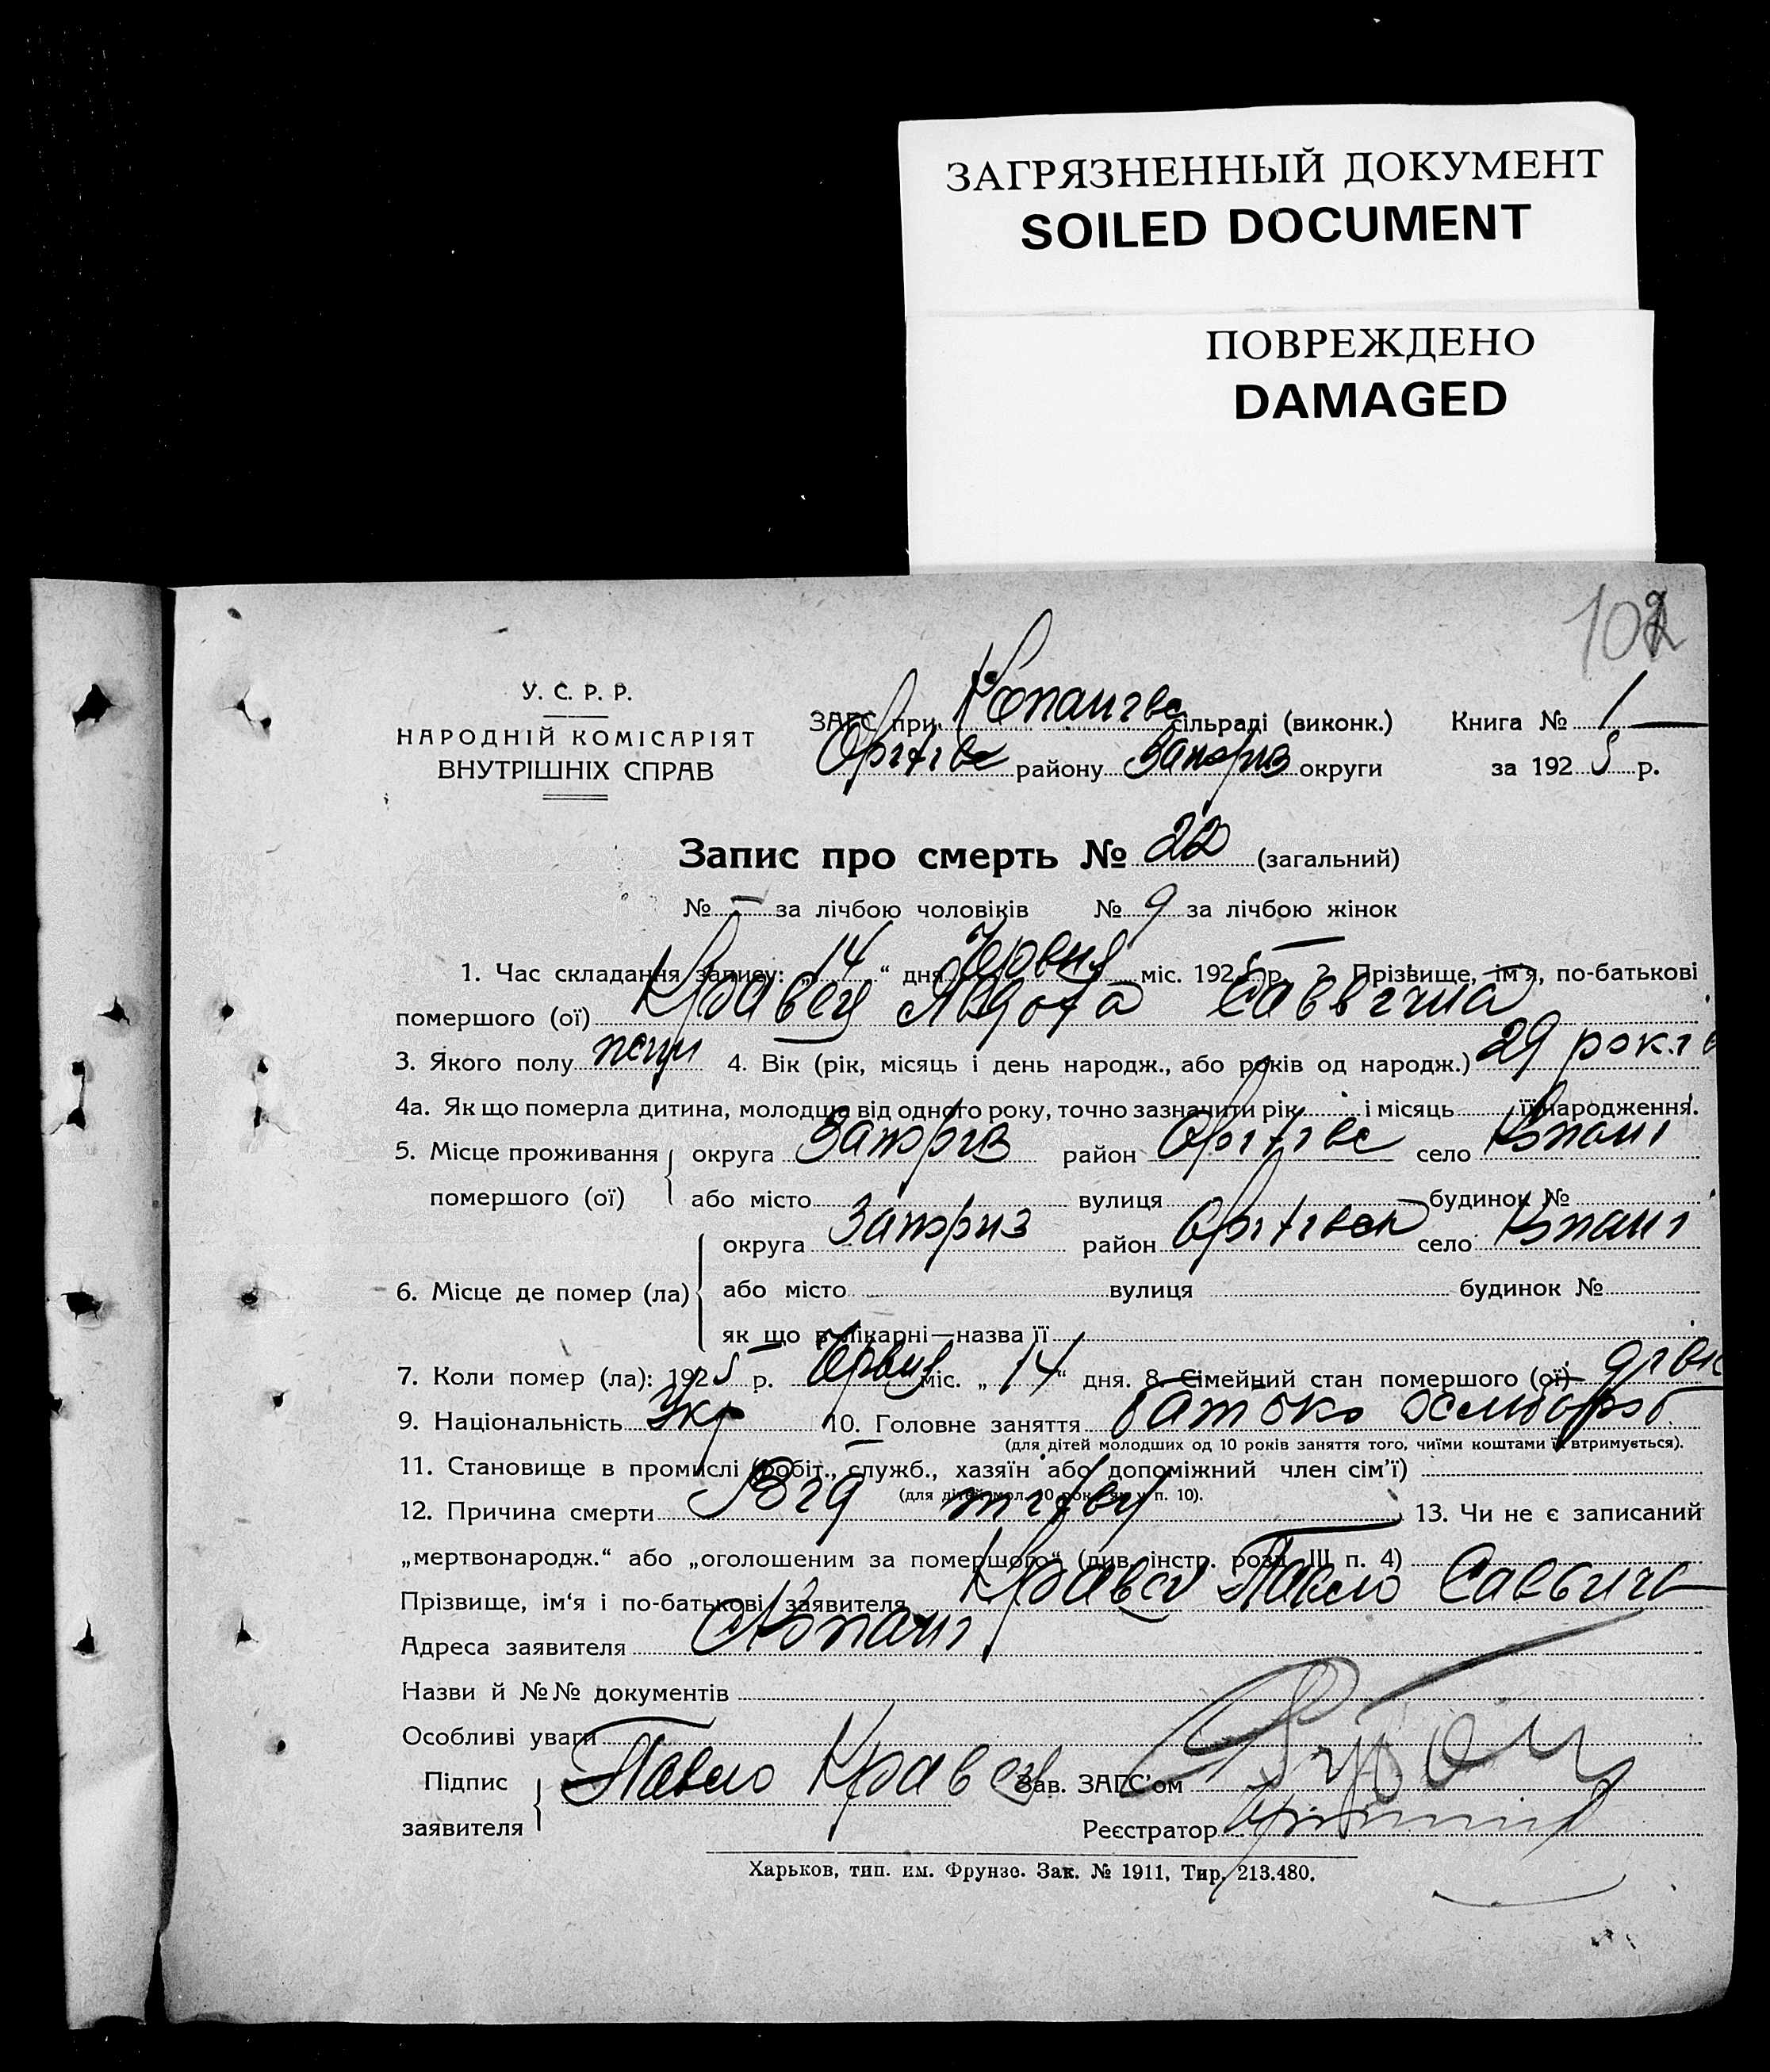 ЗАГРЯЗНЕННЫЙ ДОКУМЕНТ
SOILED DOCUMENT
ПОВРЕЖДЕНО
DAMAGED
У. С. Р. Р.
НАРОДНІЙ КОМІСАРІЯТ
ВНУТРІШНІХ СПРАВ
ЗАГС при Копанівс сільраді (виконк.) Книга № 1
Оріхівс району Запоріз округи за 1925 р.
Запис про смерть № 22 (загальний)
№ – за лічбою чоловіків № 9 за лічбою жінок
1. Час складання запису: „14“ дня Червня міс. 1925 р. 2. Прізвище, ім'я, по-батькові
помершого (ої) Кравец Явдоха Саввічна
3. Якого полу 4. Вік (рік, місяць і день народж., або років од народж.) 29 років
4а. Як що померла дитина, молодша від одного року, точно зазначити рік і місяць її народження.
5. Місце проживання помершого (ої) округа Запоріз район Оріхівс село Копані
або місто вулиця будинок №
6. Місце де помер (ла) округа Запориз район Оріхівск село Копані
або місто вулиця будинок №
як що в лікарні—назва її
7. Коли помер (ла): 1925 р. Червня міс. „14“ дня. 8. Сімейний стан помершого (ої)
9. Національність Укр 10. Головне заняття батько хлібороб
(для дітей молодших од 10 років заняття того, чиїми коштами їх втримується).
11. Становище в промислі (робіт., служб., хазяїн або допоміжний член сім'ї)
(для дітей мол. 10 рок. як у п. 10).
12. Причина смерти Від 13. Чи не є записаний
„мертвонародж.“ або „оголошеним за помершого“ (див. інстр. розд. III п. 4)
Прізвище, ім'я і по-батькові заявителя Кравец Павло Саввич
Адреса заявителя Копані
Назви й №№ документів
Особливі уваги
Підпис заявителя Павло Кравец Зав. ЗАГС'ом
Реєстратор
Харьков, тип. им. Фрунзе. Зак. № 1911, Тир. 213.480.